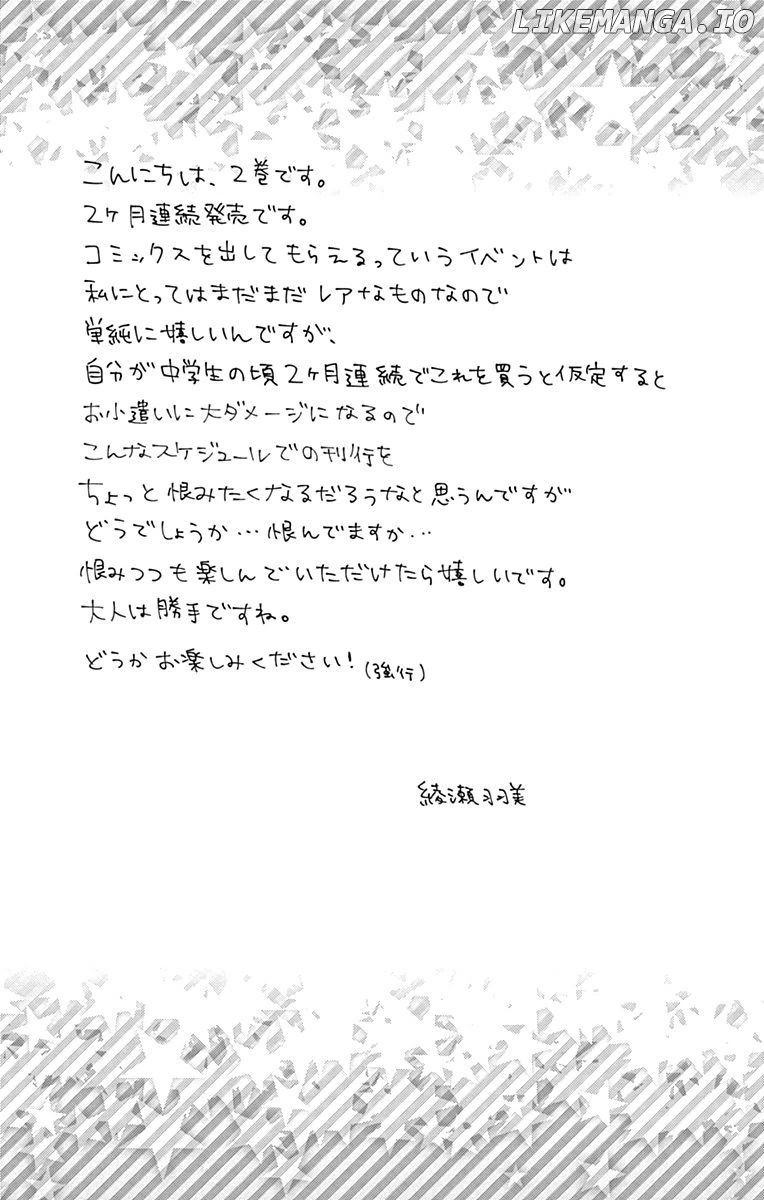 LIKEMANGA.IO
こんにちは、2巻です。
2ヶ月連続発売です。
コミックスを出してもらえるっていうイベントは
私にとってはまだまだレアなものなので
単純に嬉しいんですが、
自分が中学生の頃2ヶ月連続でこれを買うと仮定すると
お小遣いに大ダメージになるので
こんなスケジュールでの刊行を
ちょっと恨みたくなるだろうなと思うんですが
どうでしょうか…恨んでますか…
恨みつつも楽しんでいただけたら嬉しいです。
大人は勝手ですね。
どうかお楽しみください!(強行)
綾瀬羽美